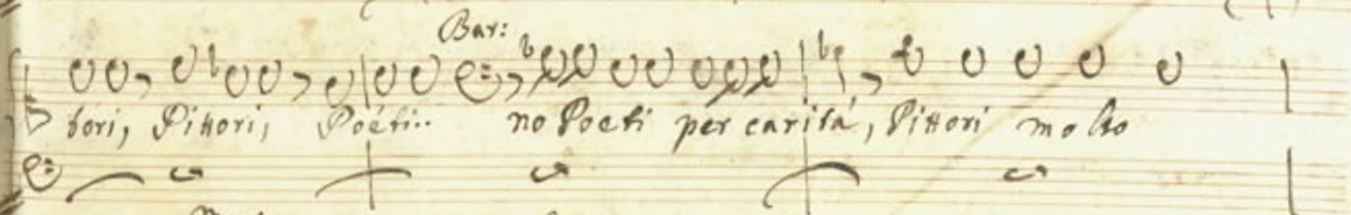 Bar:
tori, Pittori, Poeti.. no Poeti per caritá, Pittori molto